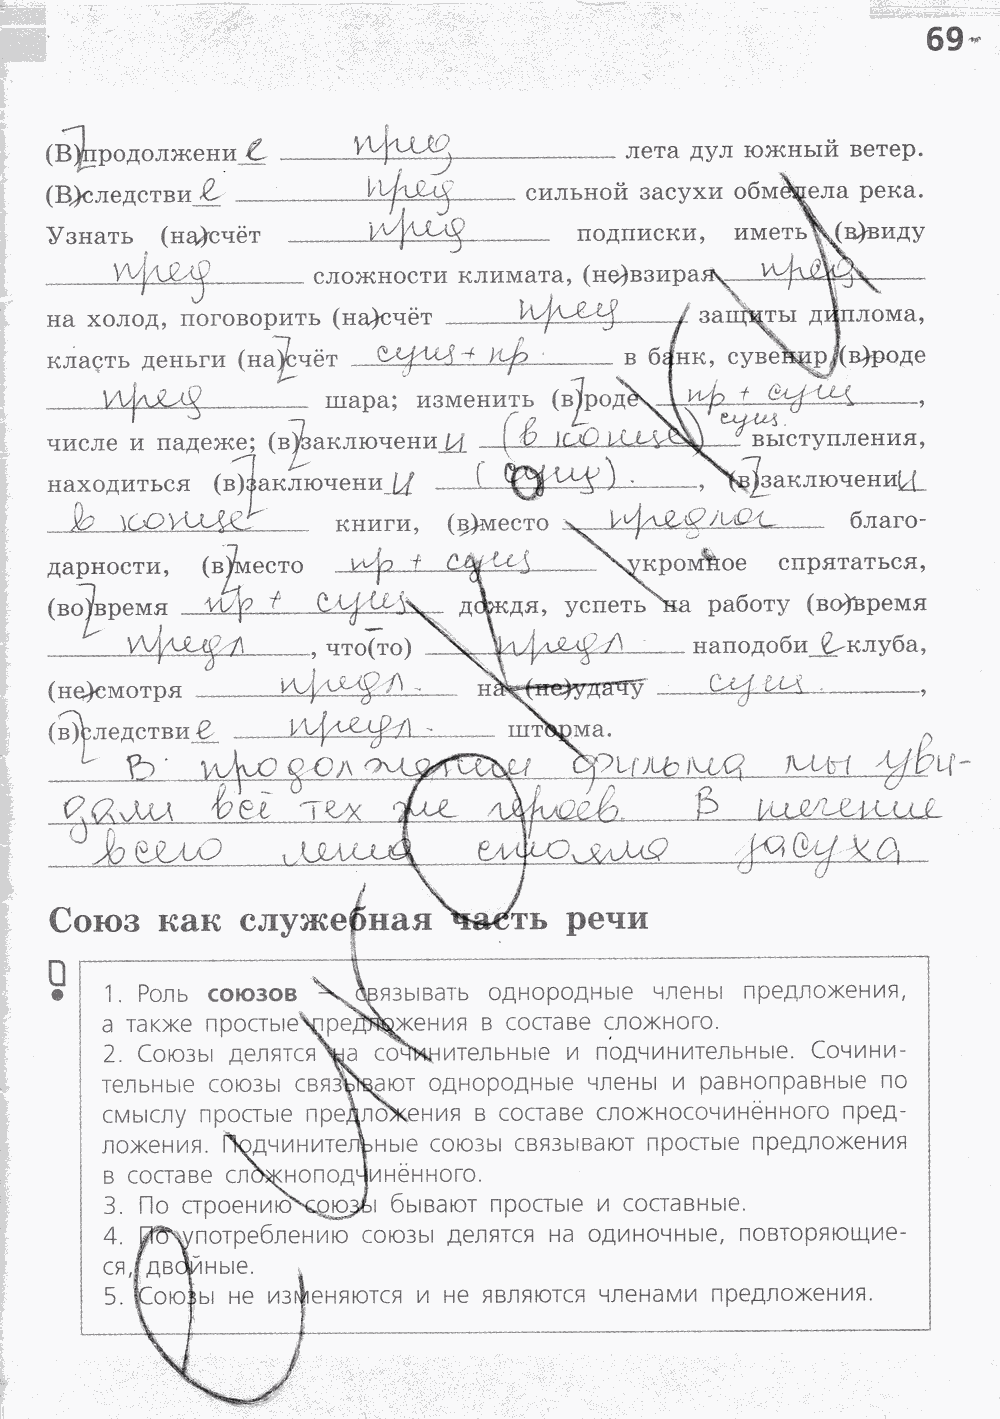 69
(В)продолжени е пред лета дул южный ветер.
(В)следстви е пред сильной засухи обмелела река.
Узнать (на)счёт пред подписки, иметь (в)виду
пред сложности климата, (не)взирая пред
на холод, поговорить (на)счёт пред защиты диплома,
класть деньги (на)счёт сущ + пр в банк, сувенир (в)роде
пред шара; изменить (в)роде пр + сущ,
числе и падеже; (в)заключени и (в конце) сущ. выступления,
находиться (в)заключени и (сущ)., (в)заключени и
в конце книги, (в)место предлог благо-
дарности, (в)место пр + сущ укромное спрятаться,
(во)время пр + сущ дождя, успеть на работу (во)время
предл, что(то) предл наподоби е клуба,
(не)смотря предл. на (не)удачу сущ.,
(в)следстви е предл. шторма.
В продолжении фильма мы уви-
дали всё тех же героев. В течение
всего лета стояла засуха
Союз как служебная часть речи
1. Роль союзов — связывать однородные члены предложения,
а также простые предложения в составе сложного.
2. Союзы делятся на сочинительные и подчинительные. Сочини-
тельные союзы связывают однородные члены и равноправные по
смыслу простые предложения в составе сложносочинённого пред-
ложения. Подчинительные союзы связывают простые предложения
в составе сложноподчинённого.
3. По строению союзы бывают простые и составные.
4. По употреблению союзы делятся на одиночные, повторяющие-
ся, двойные.
5. Союзы не изменяются и не являются членами предложения.